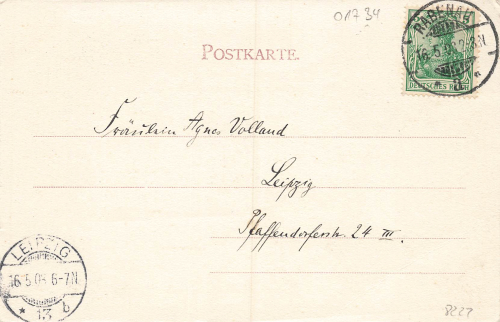 01734
POSTKARTE.
RABENAU
16.5.0
2-8N
* a *
DEUTSCHES REICH
Fräulein Agnes Volland
Leipzig
Pfaffendorferstr. 24 III.
LEIPZIG
16.5.03 6-7N
* 13 b